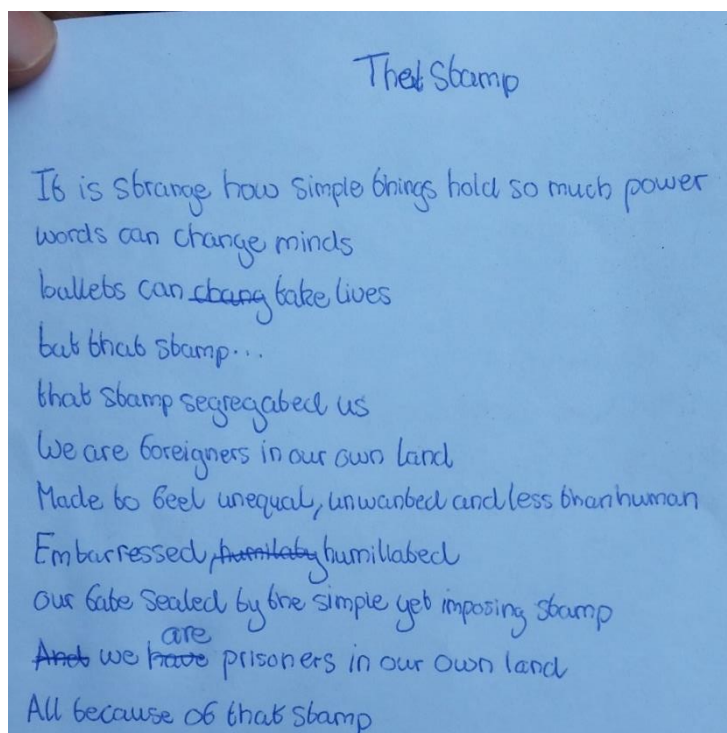 That Stamp
It is strange how simple things hold so much power
words can change minds
bullets can chang take lives
but that stamp...
that stamp segregated us
We are foreigners in our own land
Made to feel unequal, unwanted and less than human
Embarressed, humilaty humillated
our fate sealed by the simple yet imposing stamp
are
And we have prisoners in our own land
All because of that stamp